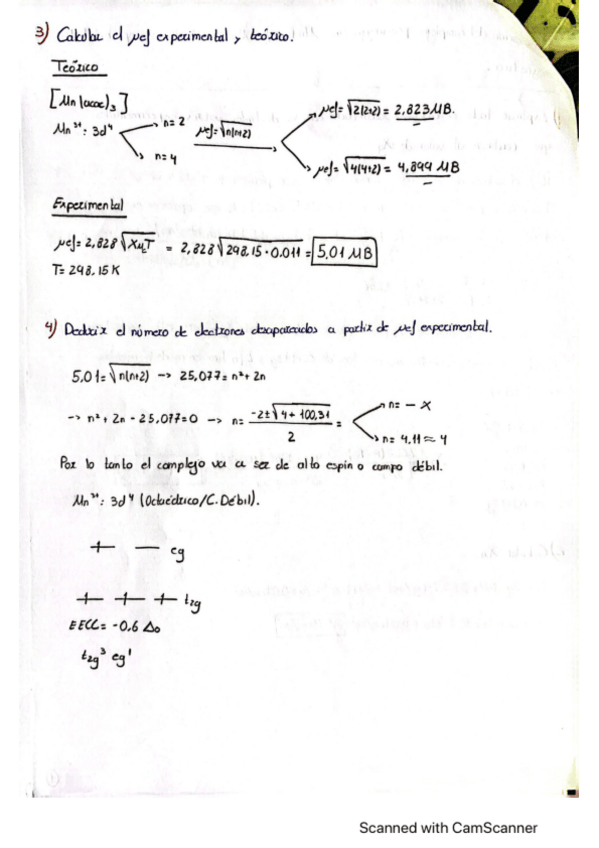 3) Calcular el μef experimental y teórico.
Teórico
[Mn(acac)₃]
Mn³⁺: 3d⁴
n=2
n=4
μef=√n(n+2)
μef=√2(2+2) = 2,823 MB.
μef=√4(4+2) = 4,899 MB
Experimental
μef= 2,828 √XMT = 2,828 √298,15·0.011 = 5,01 MB
T= 298,15 K
4) Deducir el número de electrones desapareados a partir de μef experimental.
5,01=√n(n+2) --> 25,077= n²+2n
--> n²+2n-25,077=0 --> n= -2±√4+100,31 / 2 =
n= — X
n= 4,11 ≈ 4
Por lo tanto el complejo va a ser de alto espin o campo débil.
Mn³⁺: 3d⁴ (Octaédrico/C.Débil).
eg
t₂g
EECC= -0,6 Δo
t₂g³ eg¹
Scanned with CamScanner